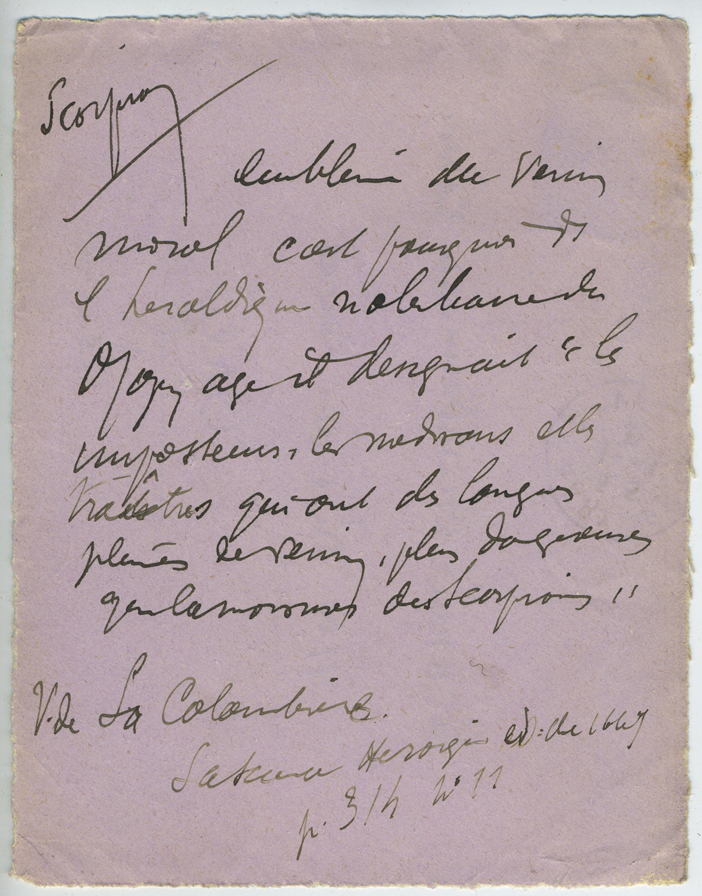 Scorpion
emblême du venin
moral c'est pourquoi ds
l'heraldique
Moyen age il designait "les
imposteurs, les medisans et les
traîtres qui ont des langues
pleines de venin, plus dangereuses
que les morsures des scorpions"
V. de La Colombière.
Science Heroique ed: de 1669
p. 314 n° 11